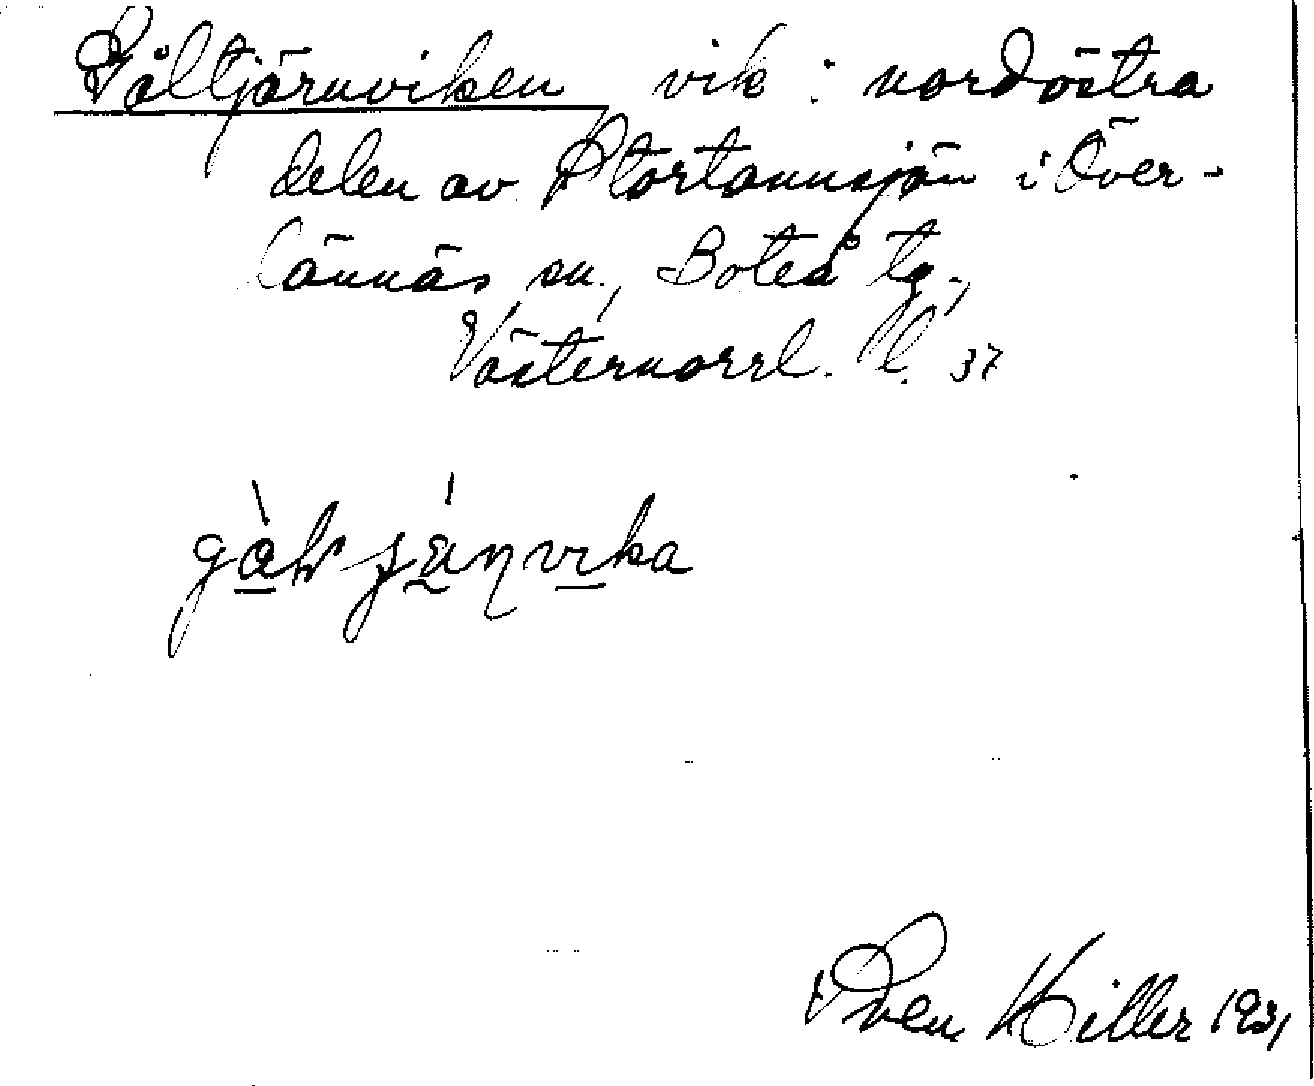 Gåltjärnviken vik i nordöstra
delen av Stortannsjön i Över-
lännäs sn, Boteå tg,
Västernorrl. l. 37
Sven Hiller 1931